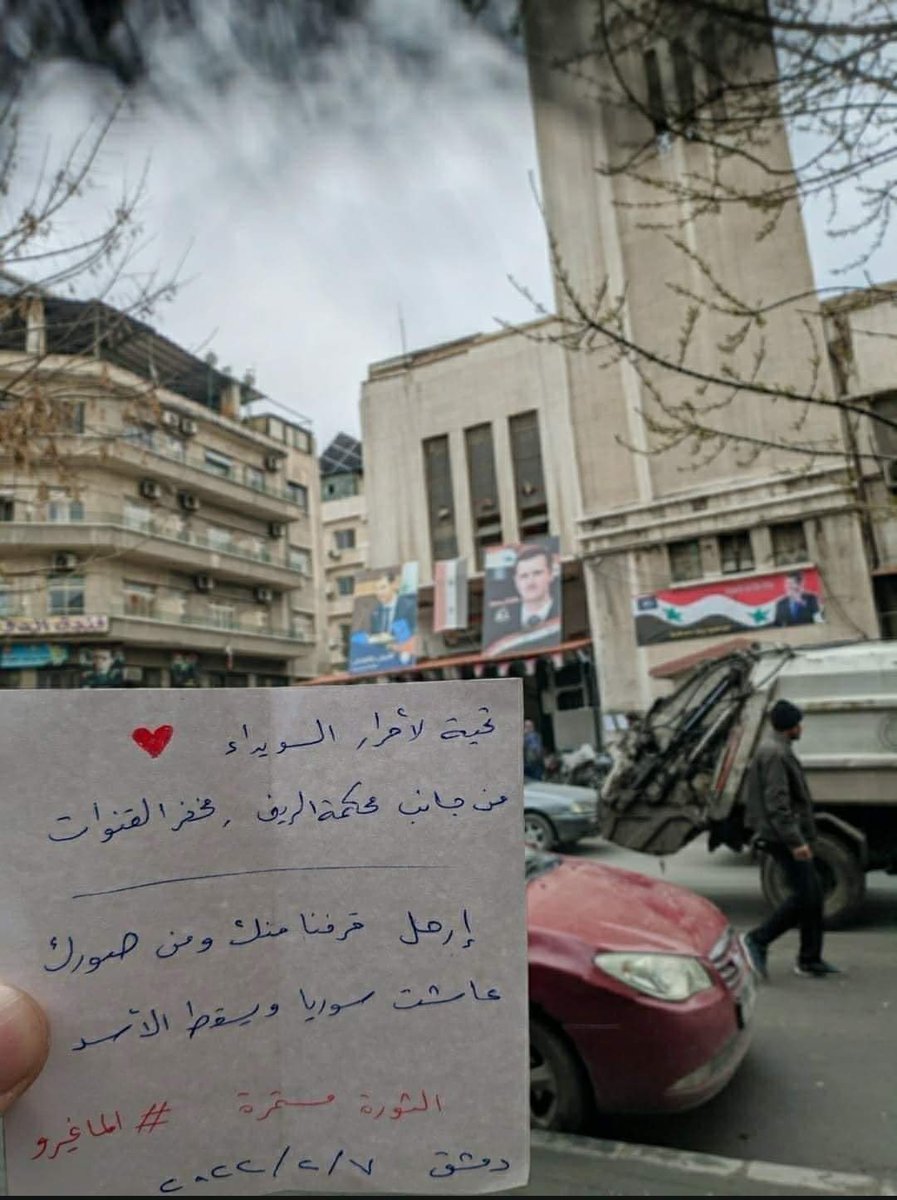 تحية لأحرار السويداء
من جانب محكمة الريف , مخفر القنوات
إرحل قرفنا منك ومن صورك
عاشت سوريا ويسقط الأسد
الثورة مستمرة # الماغيرو
دمشق ٢٠٢٢/٢/٧